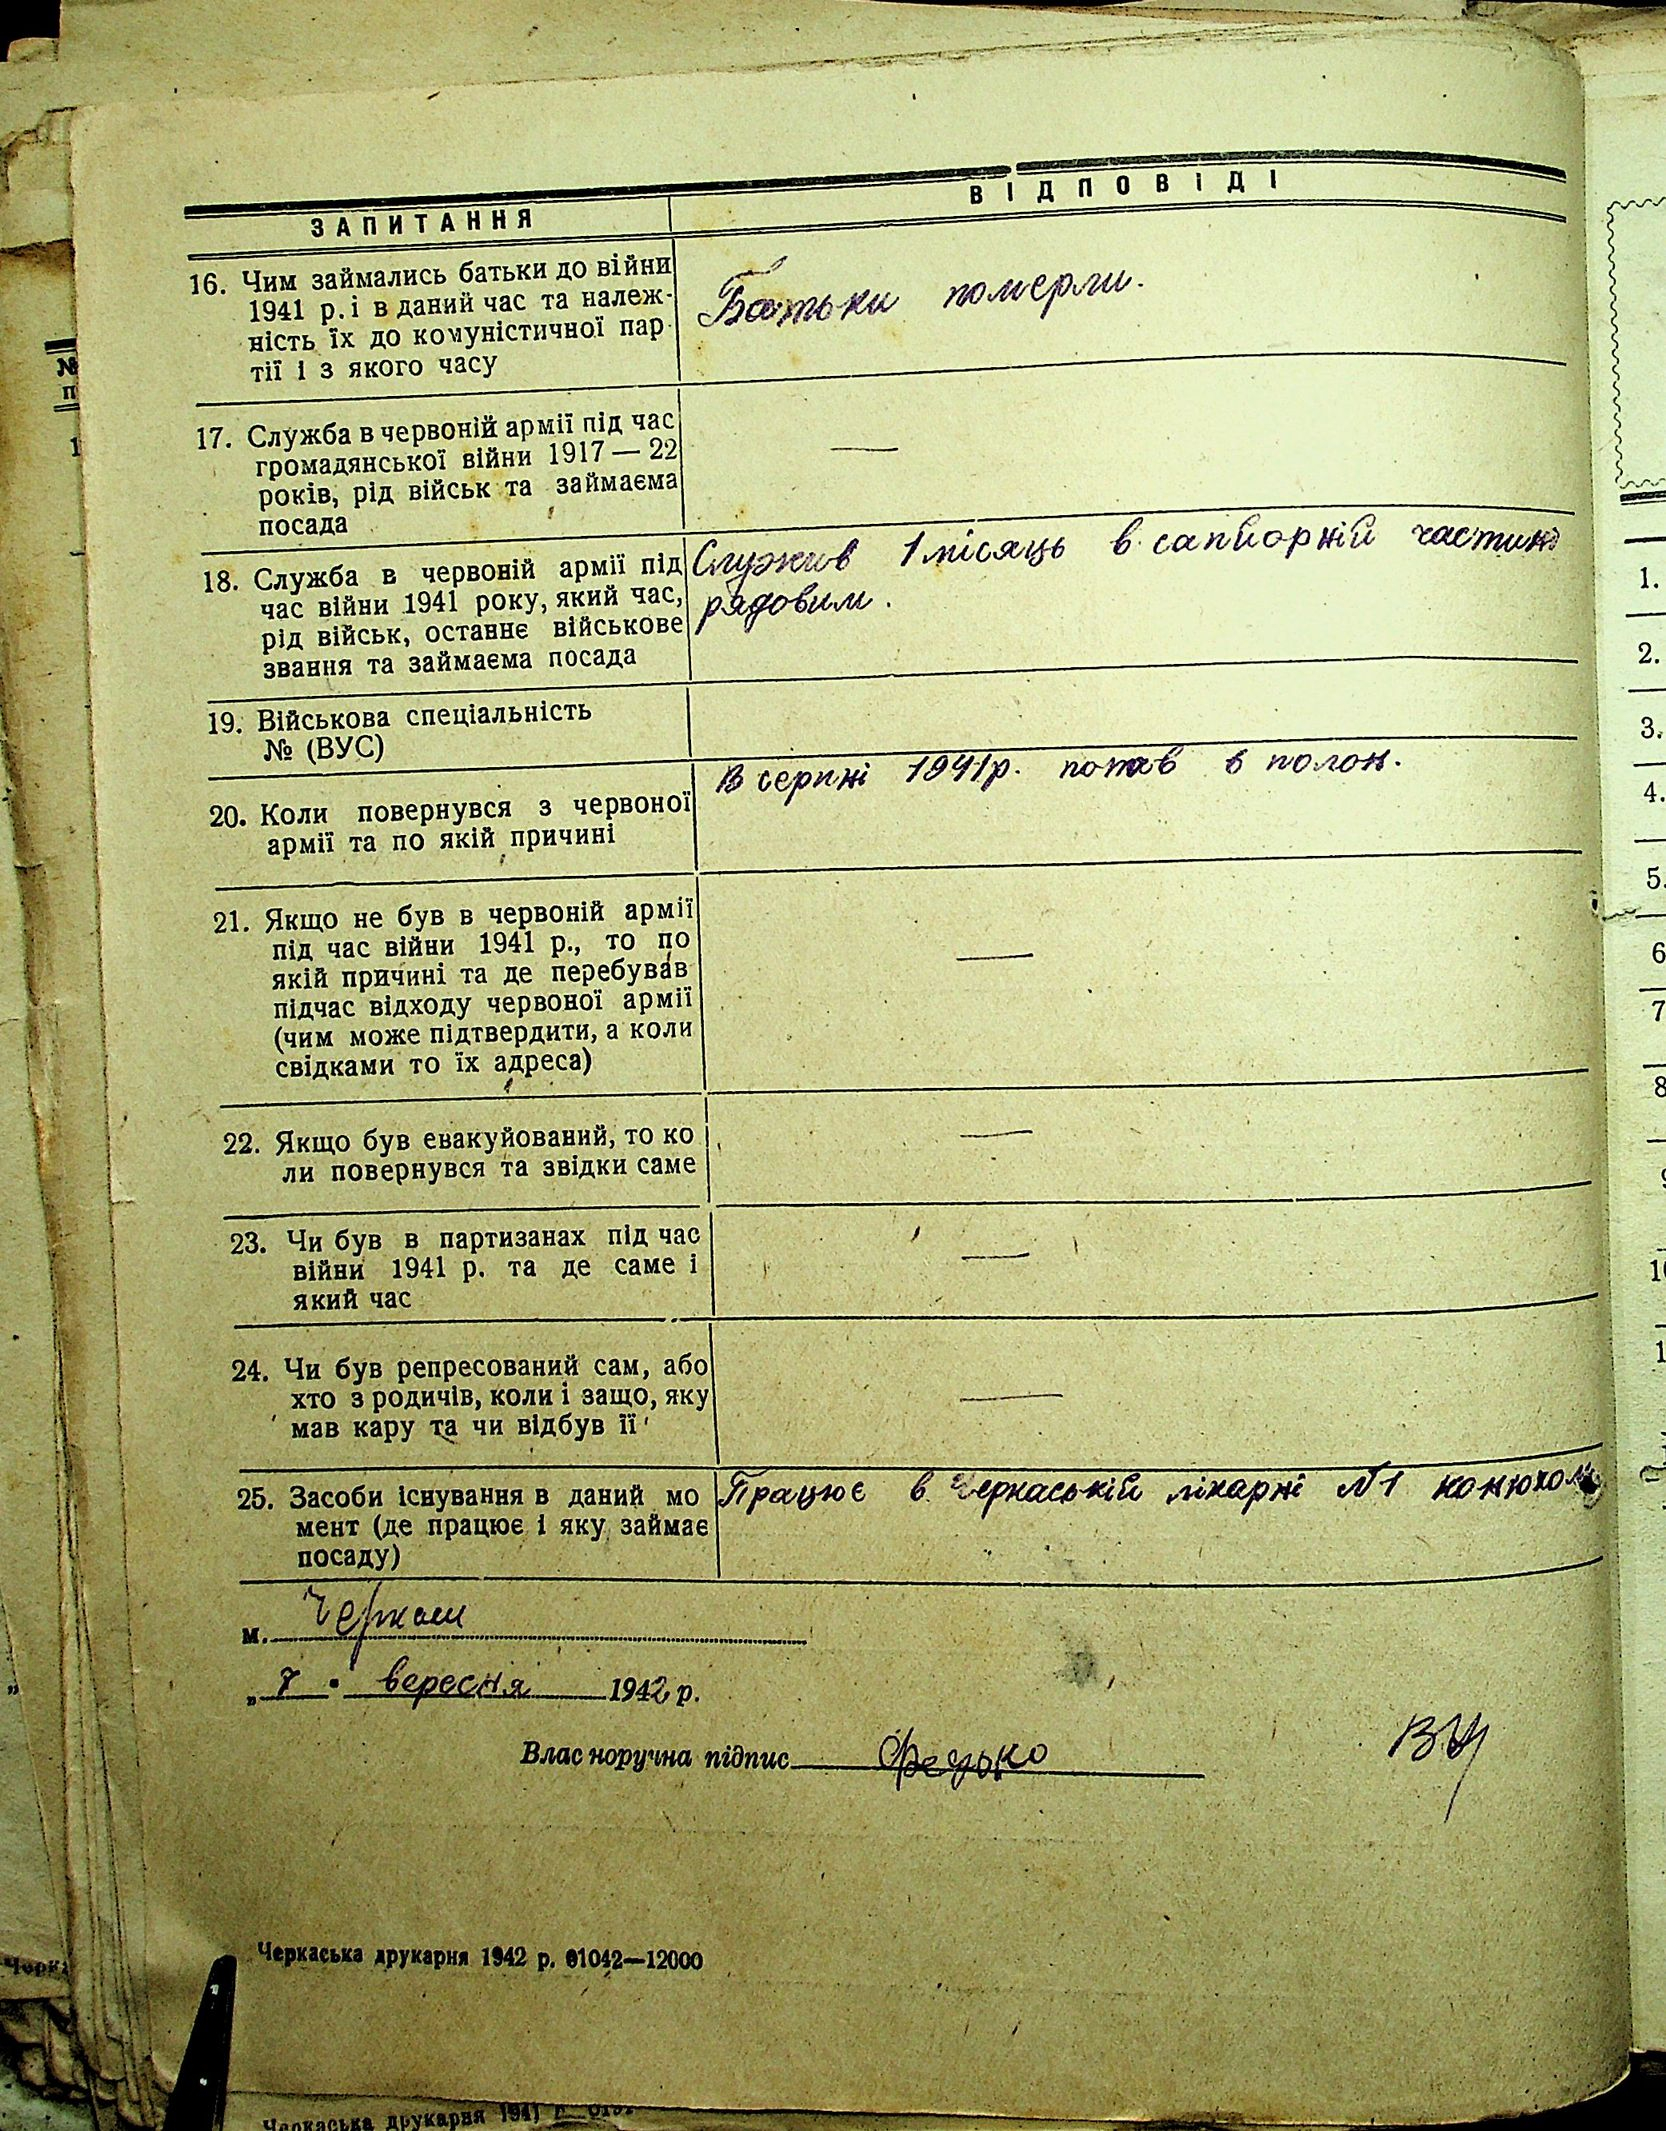 ЗАПИТАННЯ
ВІДПОВІДІ
16. Чим займались батьки до війни
1941 р. і в даний час та належ-
ність їх до комуністичної пар
тії і з якого часу
Батьки померли.
17. Служба в червоній армії під час
громадянської війни 1917 — 22
років, рід військ та займаєма
посада
—
18. Служба в червоній армії під
час війни 1941 року, який час,
рід військ, останнє військове
звання та займаєма посада
Служив 1 місяць в сапйорній частині
рядовим.
19. Військова спеціальність
№ (ВУС)
20. Коли повернувся з червоної
армії та по якій причині
В серпні 1941р. попав в полон.
21. Якщо не був в червоній армії
під час війни 1941 р., то по
якій причині та де перебував
підчас відходу червоної армії
(чим може підтвердити, а коли
свідками то їх адреса)
—
22. Якщо був евакуйований, то ко
ли повернувся та звідки саме
—
23. Чи був в партизанах під час
війни 1941 р. та де саме і
який час
—
24. Чи був репресований сам, або
хто з родичів, коли і защо, яку
мав кару та чи відбув її
—
25. Засоби існування в даний мо
мент (де працює і яку займає
посаду)
Працює в Черкаській лікарні №1 конюхом
м. Черкаси
„ 7 " вересня 1942 р.
Власноручна підпис Федько
Черкаська друкарня 1942 р. 01042—12000
Черкаська друкарня 1941
№
п
1
1.
2.
3.
4.
5.
6
7
8